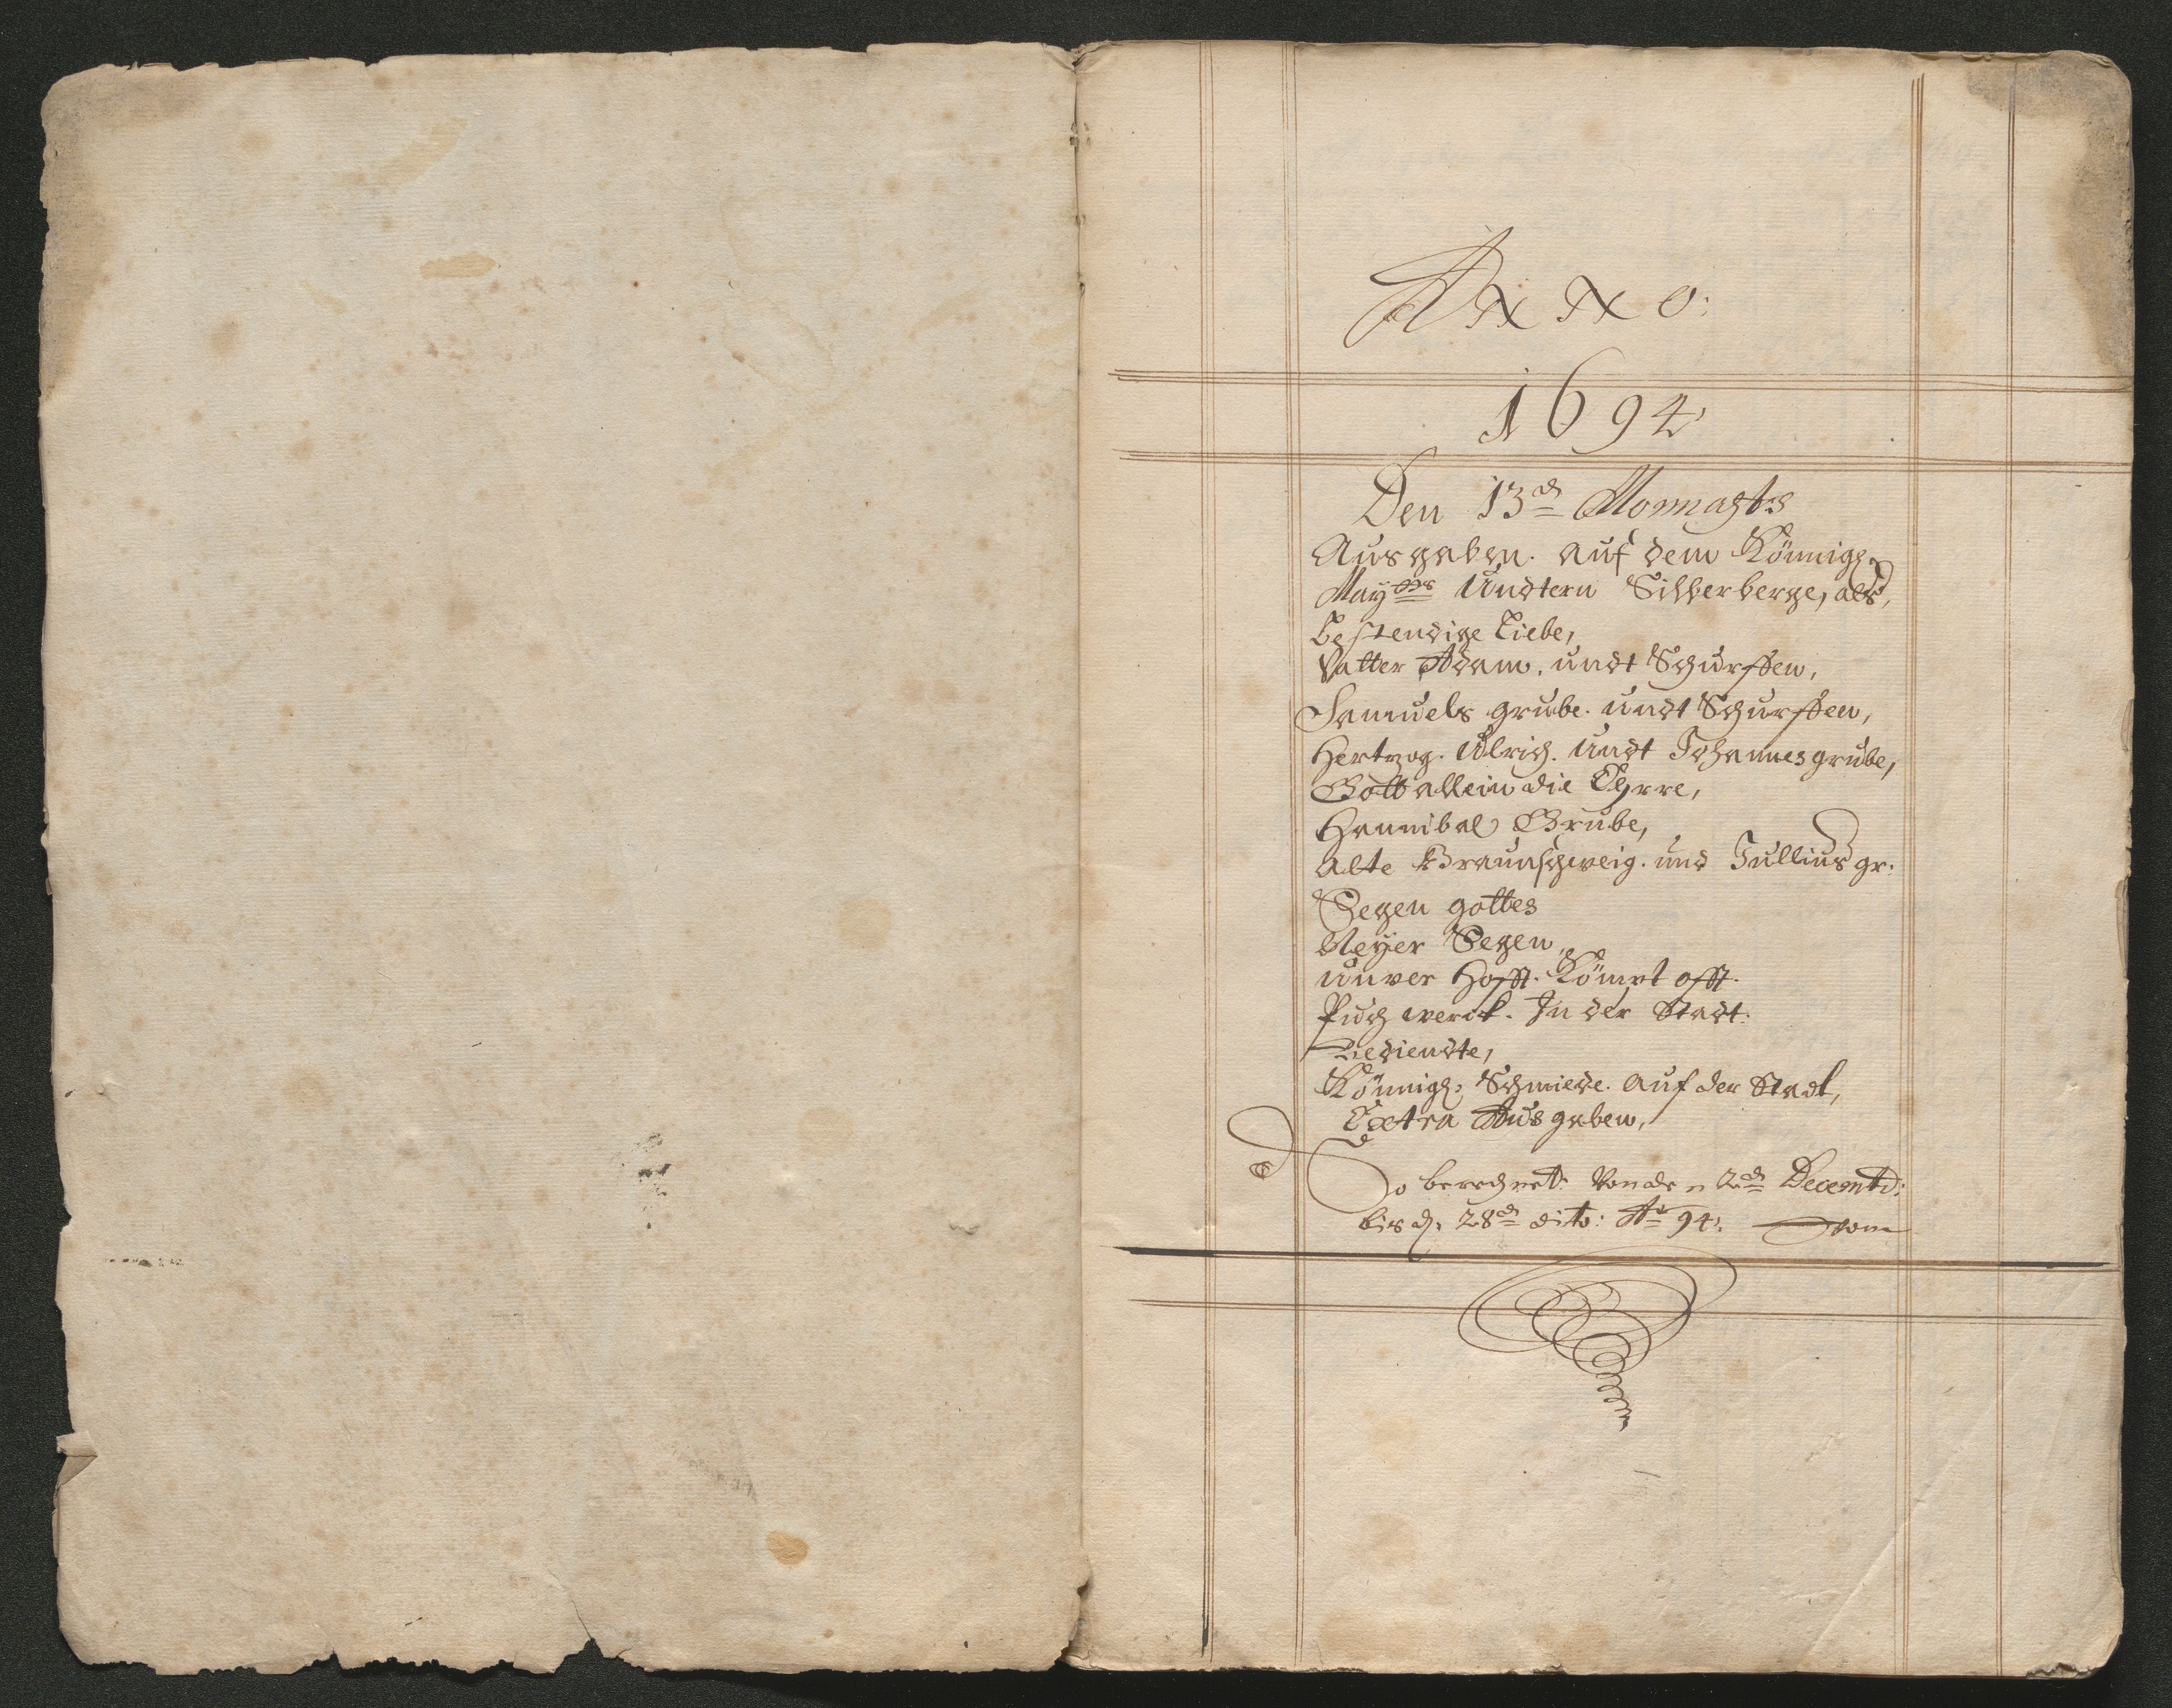 Anno:
1694
Den 13d Monnachts
Ausgaben. auf dem Könnigl.
May tts Undtern Silberberge, als,
Bestendige Liebe,
Vatter Adam. undt Schurffen,
Samuels grube. undt Schurffen,
Hertzog. Ulrich. undt Johannes grube,
Gott allein die Ehrre,
Hannibal Grube,
Alte Braunschweig. und Jullius gr.
Segen gottes
Neyer Segen,
unver Hofft. Kömpt offt.
Puch werck. In der Stadt.
Bediendte,
Könnigl. Schmiede. auf der Stadt,
Extra Ausgaben,
So berechnet. Von den 2d Decemb:
bis d. 28d dito: Ao 94.